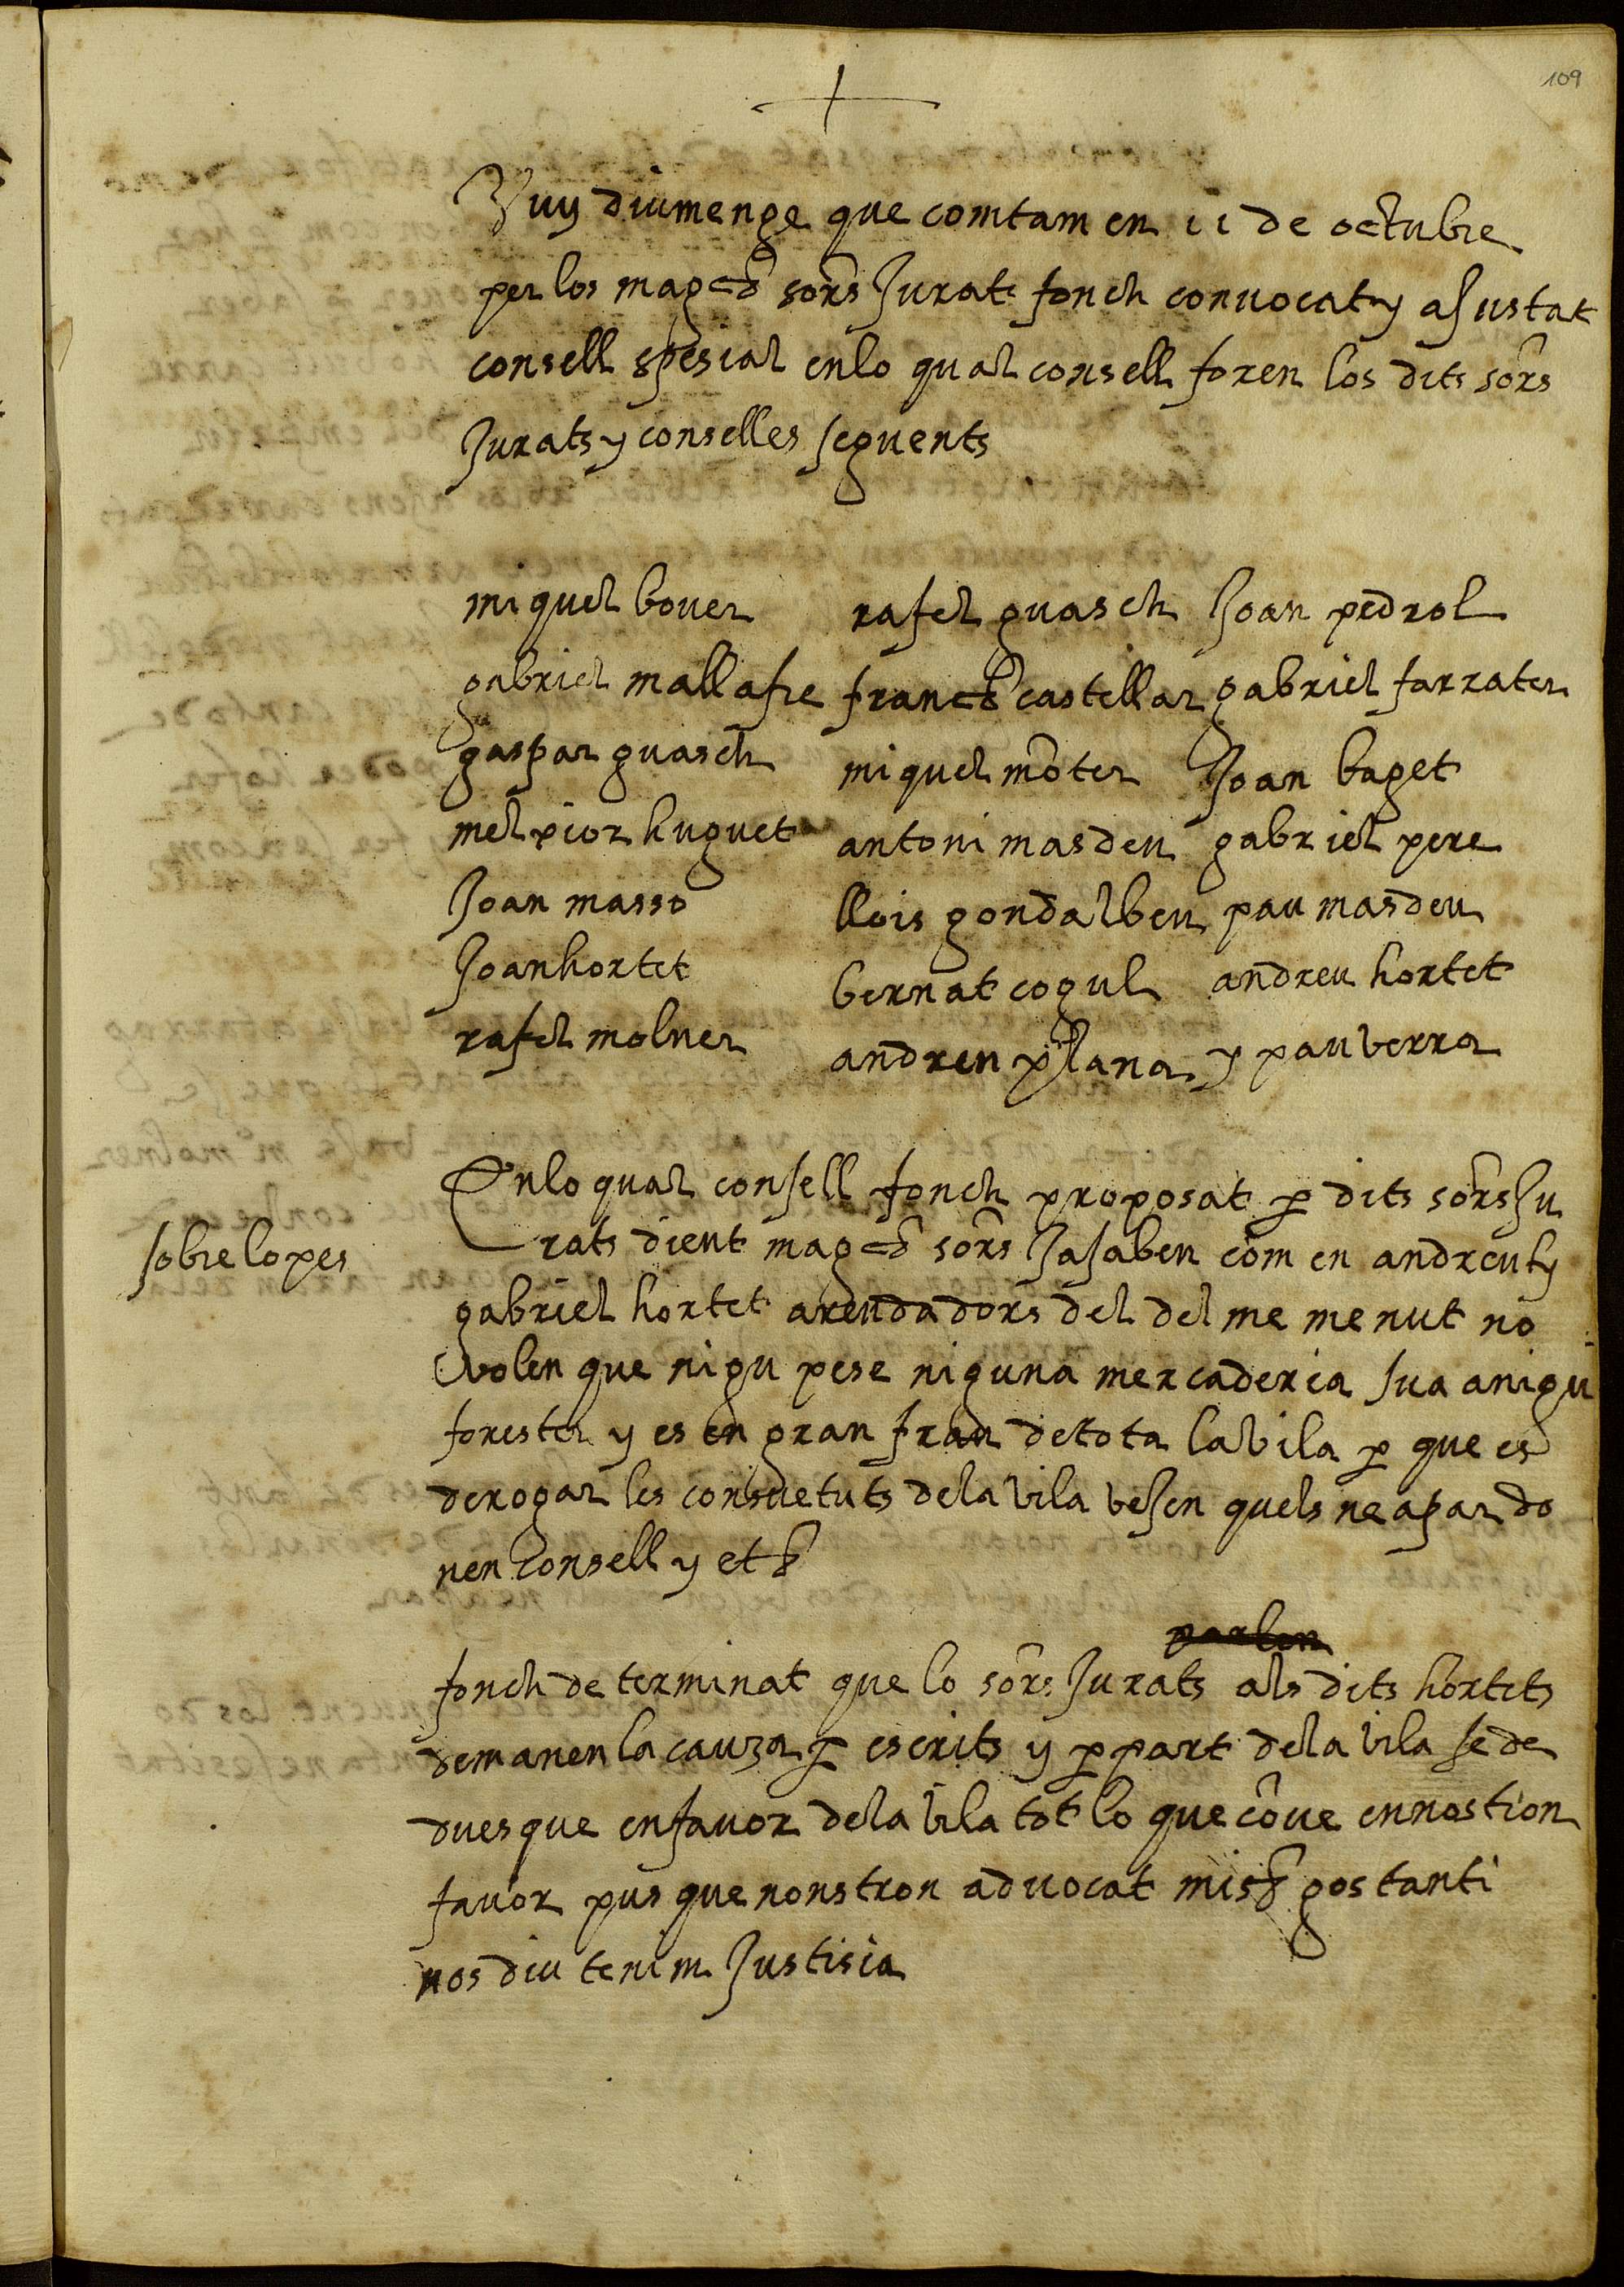 109
Vuy diumenge que comtam en 11 de octubre
per los magchs sors Jurats fonch convocat y aJustat
consell spesial en lo qual consell foren los dits sors
Jurats y conselles seguents
miquel bover
rafel guasch
Joan pedrol
gabriel mallafre
franch castellar
gabriel farrater
gaspar guasch
miquel moter
Joan baget
melxior huguet
antoni masdeu
gabriel pere
Joan masso
llois gondalbeu
pau masdeu
Joan hortet
bernat cogul
andreu hortet
rafel molner
andreu plana
y pau verra
Enlo qual consell fonch proposat per dits sors Ju
sobre lo pes
rats dient magchs sors Ja saben com en andreu y
gabriel hortet arendadors del delme menut no
volen que nigu pese niguna mercaderia sua a nigu
forester y es en gran frau de tota la vila per que es
derogar les consuetuts de la vila veJen quels ne apar do
nen consell y etc
parlen
fonch determinat que lo sors Jurats als dits hortets
demanen la cauza per escrits y per part de la vila se de
duesque en favor de la vila tot lo que cove en nostron
favor pus que nonstron advocat misr gostanti
nos diu tenim Justisia